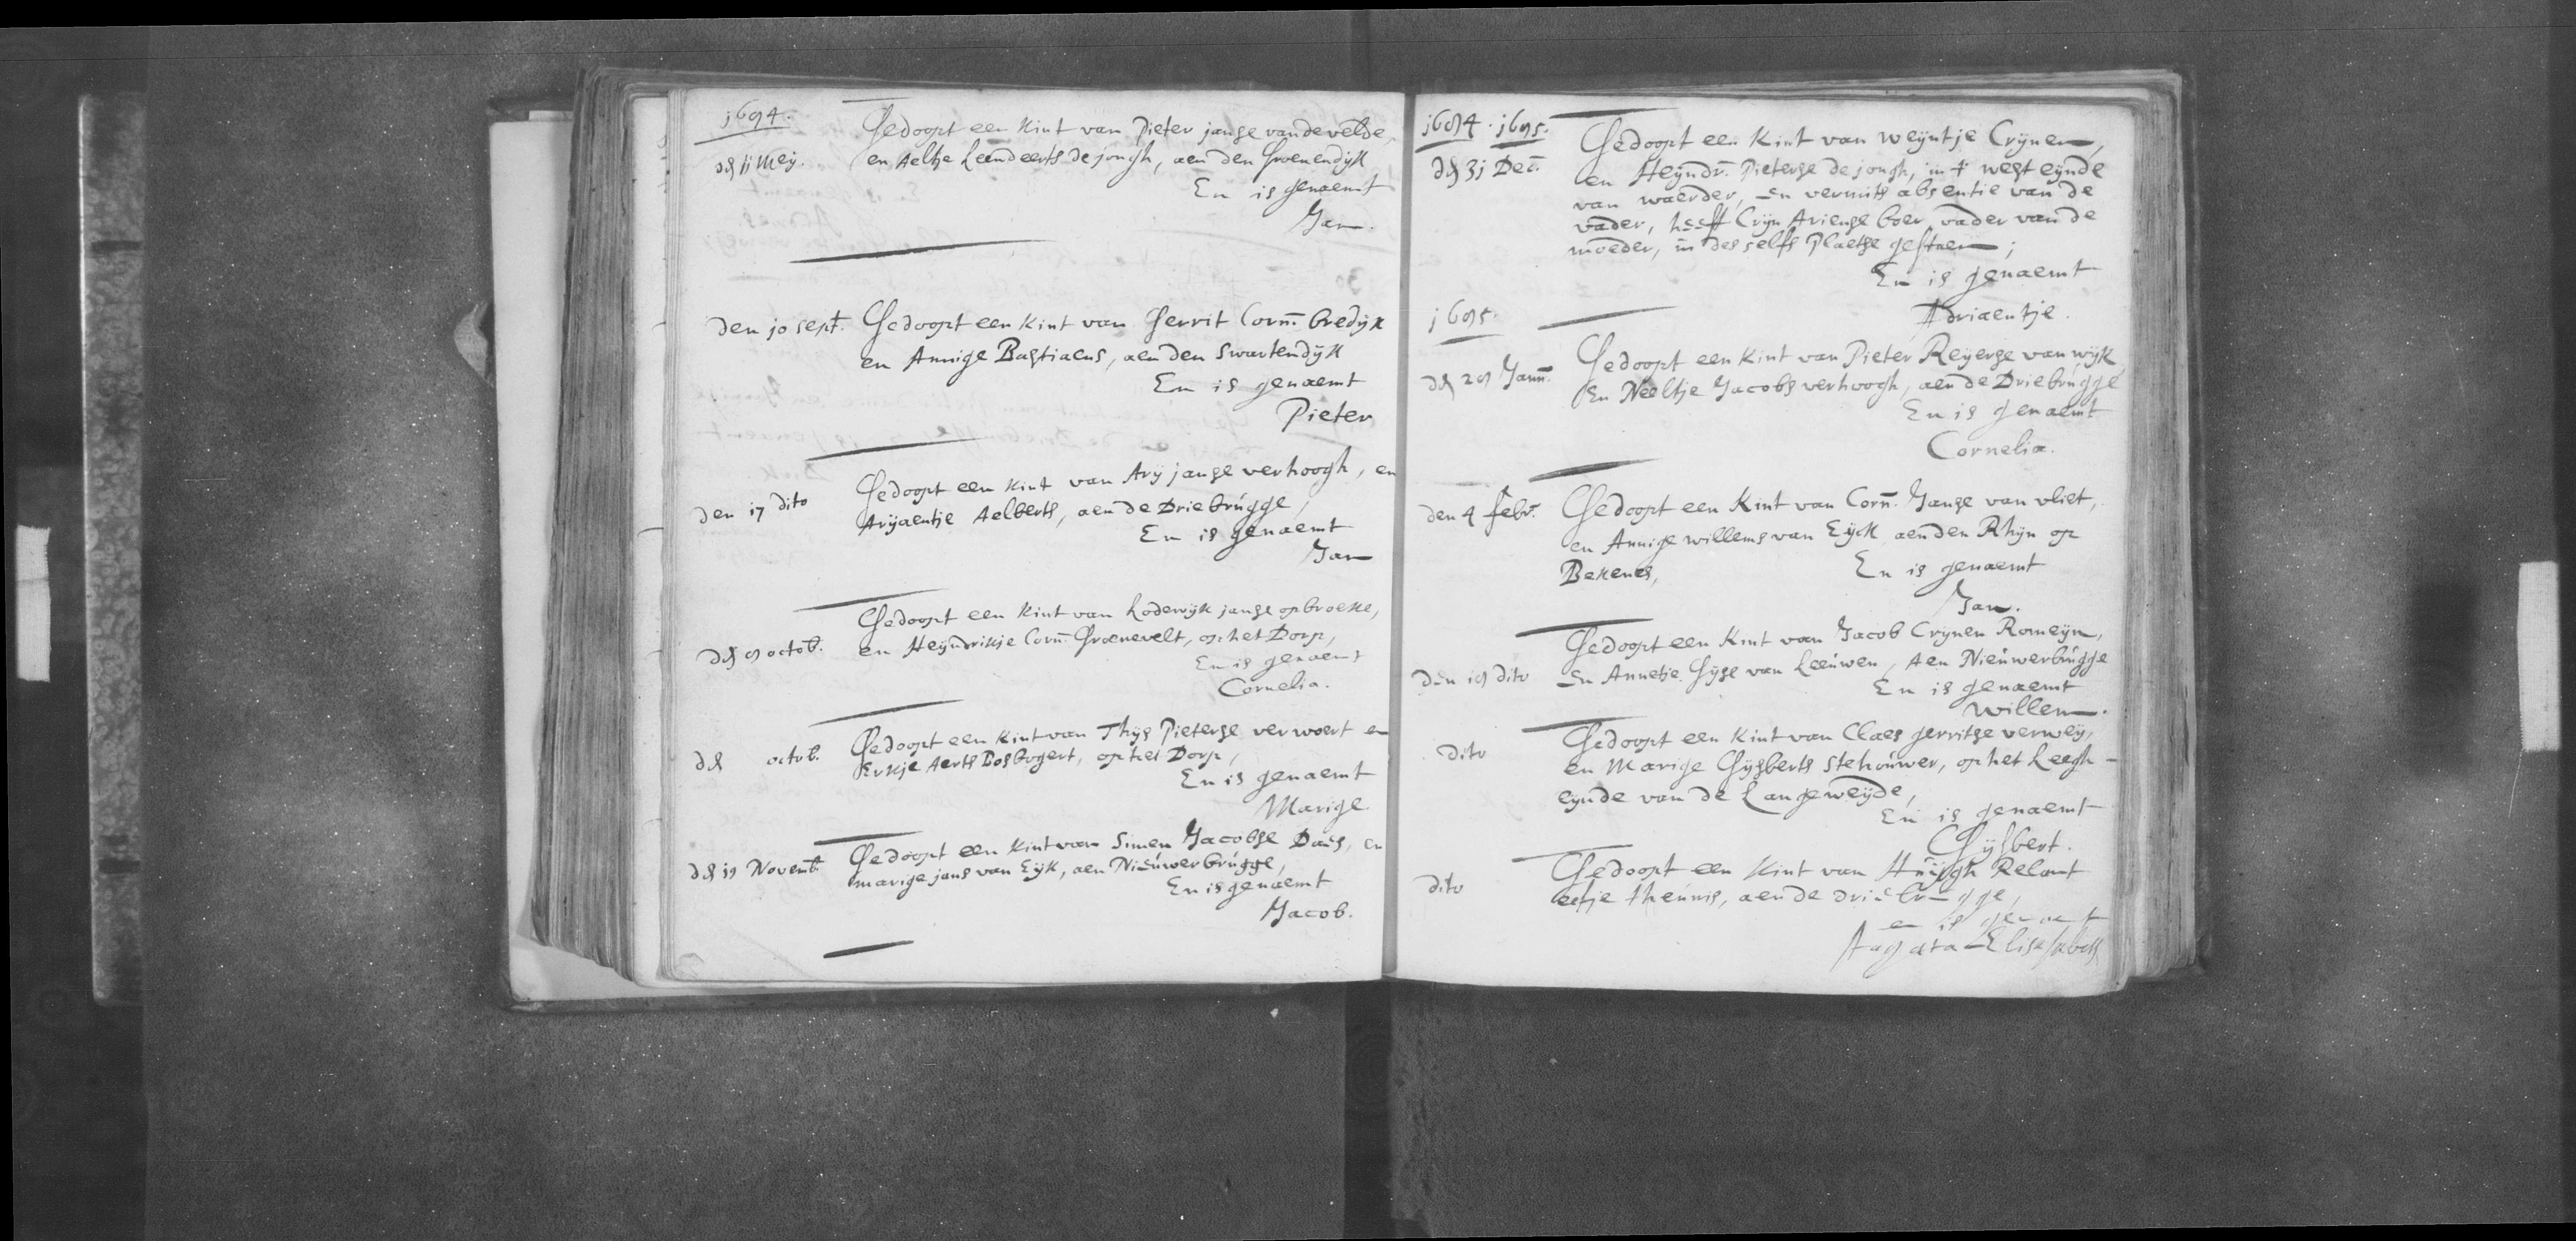 1694.
dħ 11 Meij. Gedoopt een Kint van Pieter janse vandevelde,
en Aeltie Leendeerts de jongh, aen den Groenendijk
En is genaemt
Jan.
den 10 sept. Gedoopt een Kint van Gerrit Corn. bredijk
en Annige Bastiaens, aen den Swartendijk
En is genaemt
Pieter
den 17 dito Gedoopt een Kint van Arij janse verhoogh, en
Arijaentje Aelberts, aen de Driebrugge,
En is genaemt
Jan
dħ 9 octob. Gedoopt een Kint van Lodewijk janse opbroeke,
en Heijndrikje Corn. Groenevelt, op het Dorp,
En is genaemt
Cornelia.
dħ octob. Gedoopt een Kint van Thijs Pieterse verwoert en
Erkje Aerts Bosbogert, op het Dorp,
En is genaemt
Marige
dħ 19 Novemb. Gedoopt een Kint van Simen Jacobse Does, en
marige jans van Eijk, aen Nieuwerbrugge,
En is genaemt
Jacob.
1694. 1695.
dħ 31 Dec. Gedoopt een Kint van weijntje Crijnen,
en Heijndr. Pieterse de jongh, in 't west eijnde
van waerder, en vermits absentie van de
vader, heeft Crijn Ariense boer, vader van de
moeder, in des selfs Plaetse gestaen;
En is genaemt
Adriaentje.
1695.
dħ 29 Jann. Gedoopt een Kint van Pieter Reijerse van wijk
En Neeltje Jacobs verhoogh, aen de Driebrugge
En is genaemt
Cornelia.
den 4 febr. Gedoopt een Kint van Corn. Janse van vliet,
en Annige willems van Eijck aen den Rhijn op
Bekenes, En is genaemt
Jan.
den 19 dito Gedoopt een Kint van Jacob Crijnen Romeijn,
En Annetje Gijse van Leeuwen, Aen Nieuwerbrugge
En is genaemt
Willem.
dito Gedoopt een Kint van Claes gerritse verweij,
en Marige Gijsberts stehouwer, op het Leegh-
eijnde van de Langeweijde,
En is genaemt
Gijsbert.
dito Gedoopt een Kint van Huijgh Relant
eetje theunis, aen de driebrugge,
en is genaemt
Aagata Elisabeth